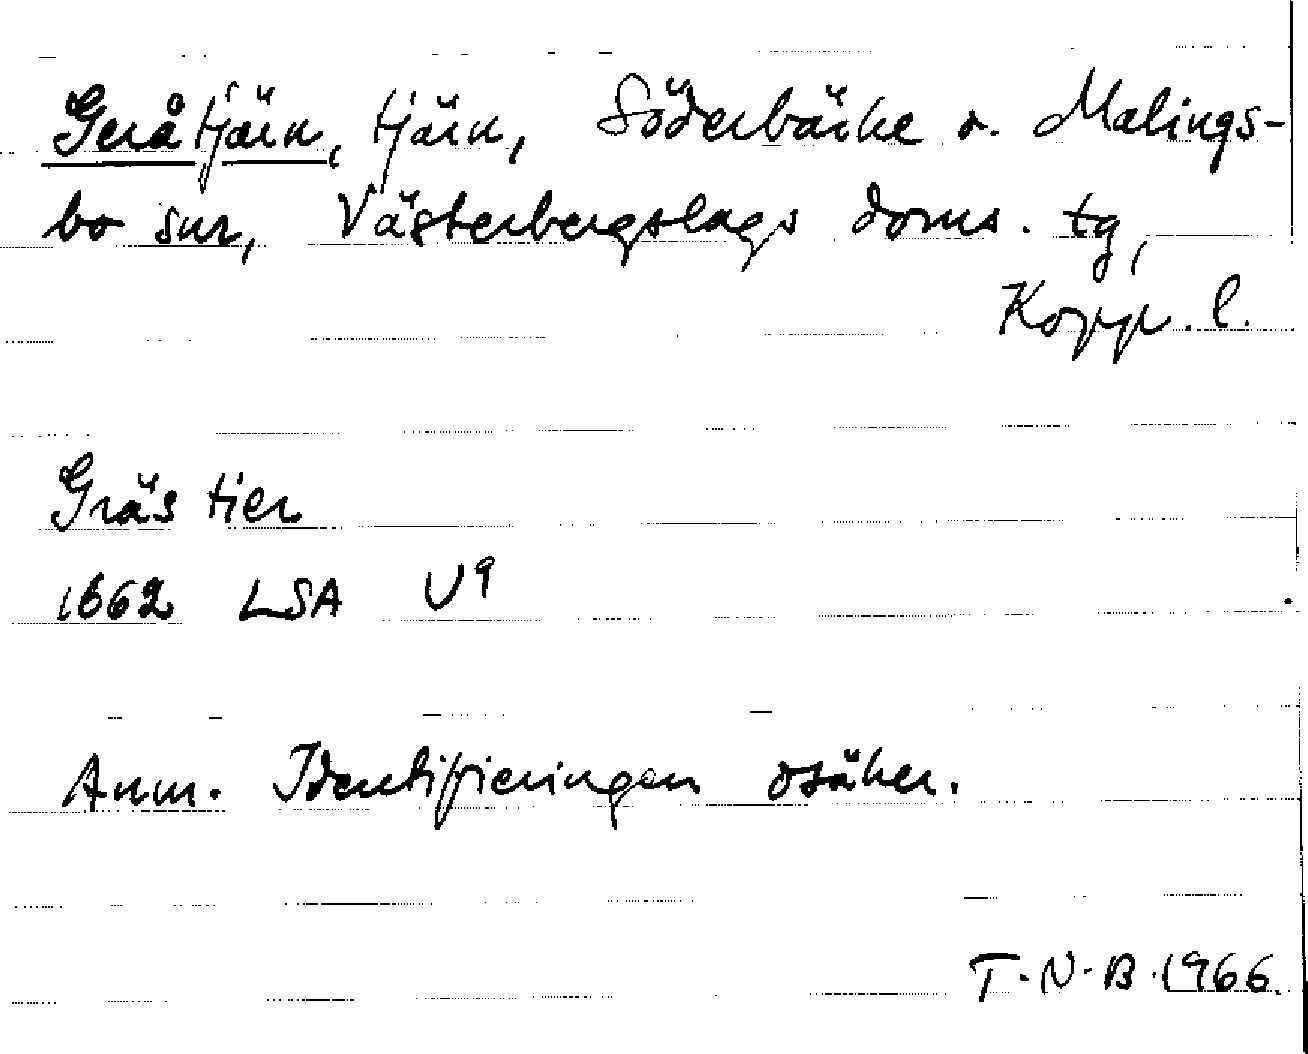 Geråtjärn, tjärn, Söderbärke o. Malings-
bo snr, Västerbergslags doms. tg,
Kopp. l.
Gräs tiern
1662 LSA U9
Anm. Identifieringen osäker.
T.N.B. 1966.